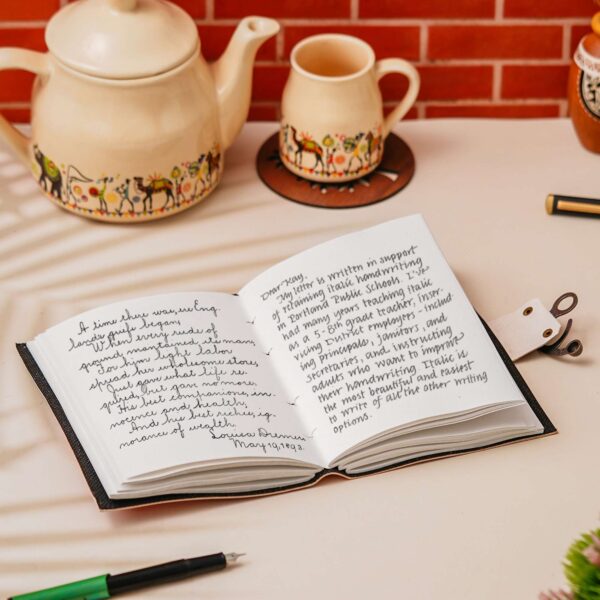 A time there was, ere Eng.
land's griefs began,
When every rude of
ground maintained its man;
For him light labor
spread her wholesome store,
Just gave what life re.
quired, but gave no more;
His best companions, in.
nocence and health,
And his best riches, ig.
norance of wealth.
Louisa
May 19, 1893.
Dear Kay,
My letter is written in support
of retaining italic handwriting
in Portland Public Schools. I've
had many years teaching italic
as a 5-8th grade teacher, inser-
vicing District employees - includ
ing principals, janitors, and
secretaries, and instructing
adults who want to improve
their handwriting. Italic is
the most beautiful and easiest
to write of all the other writing
options.